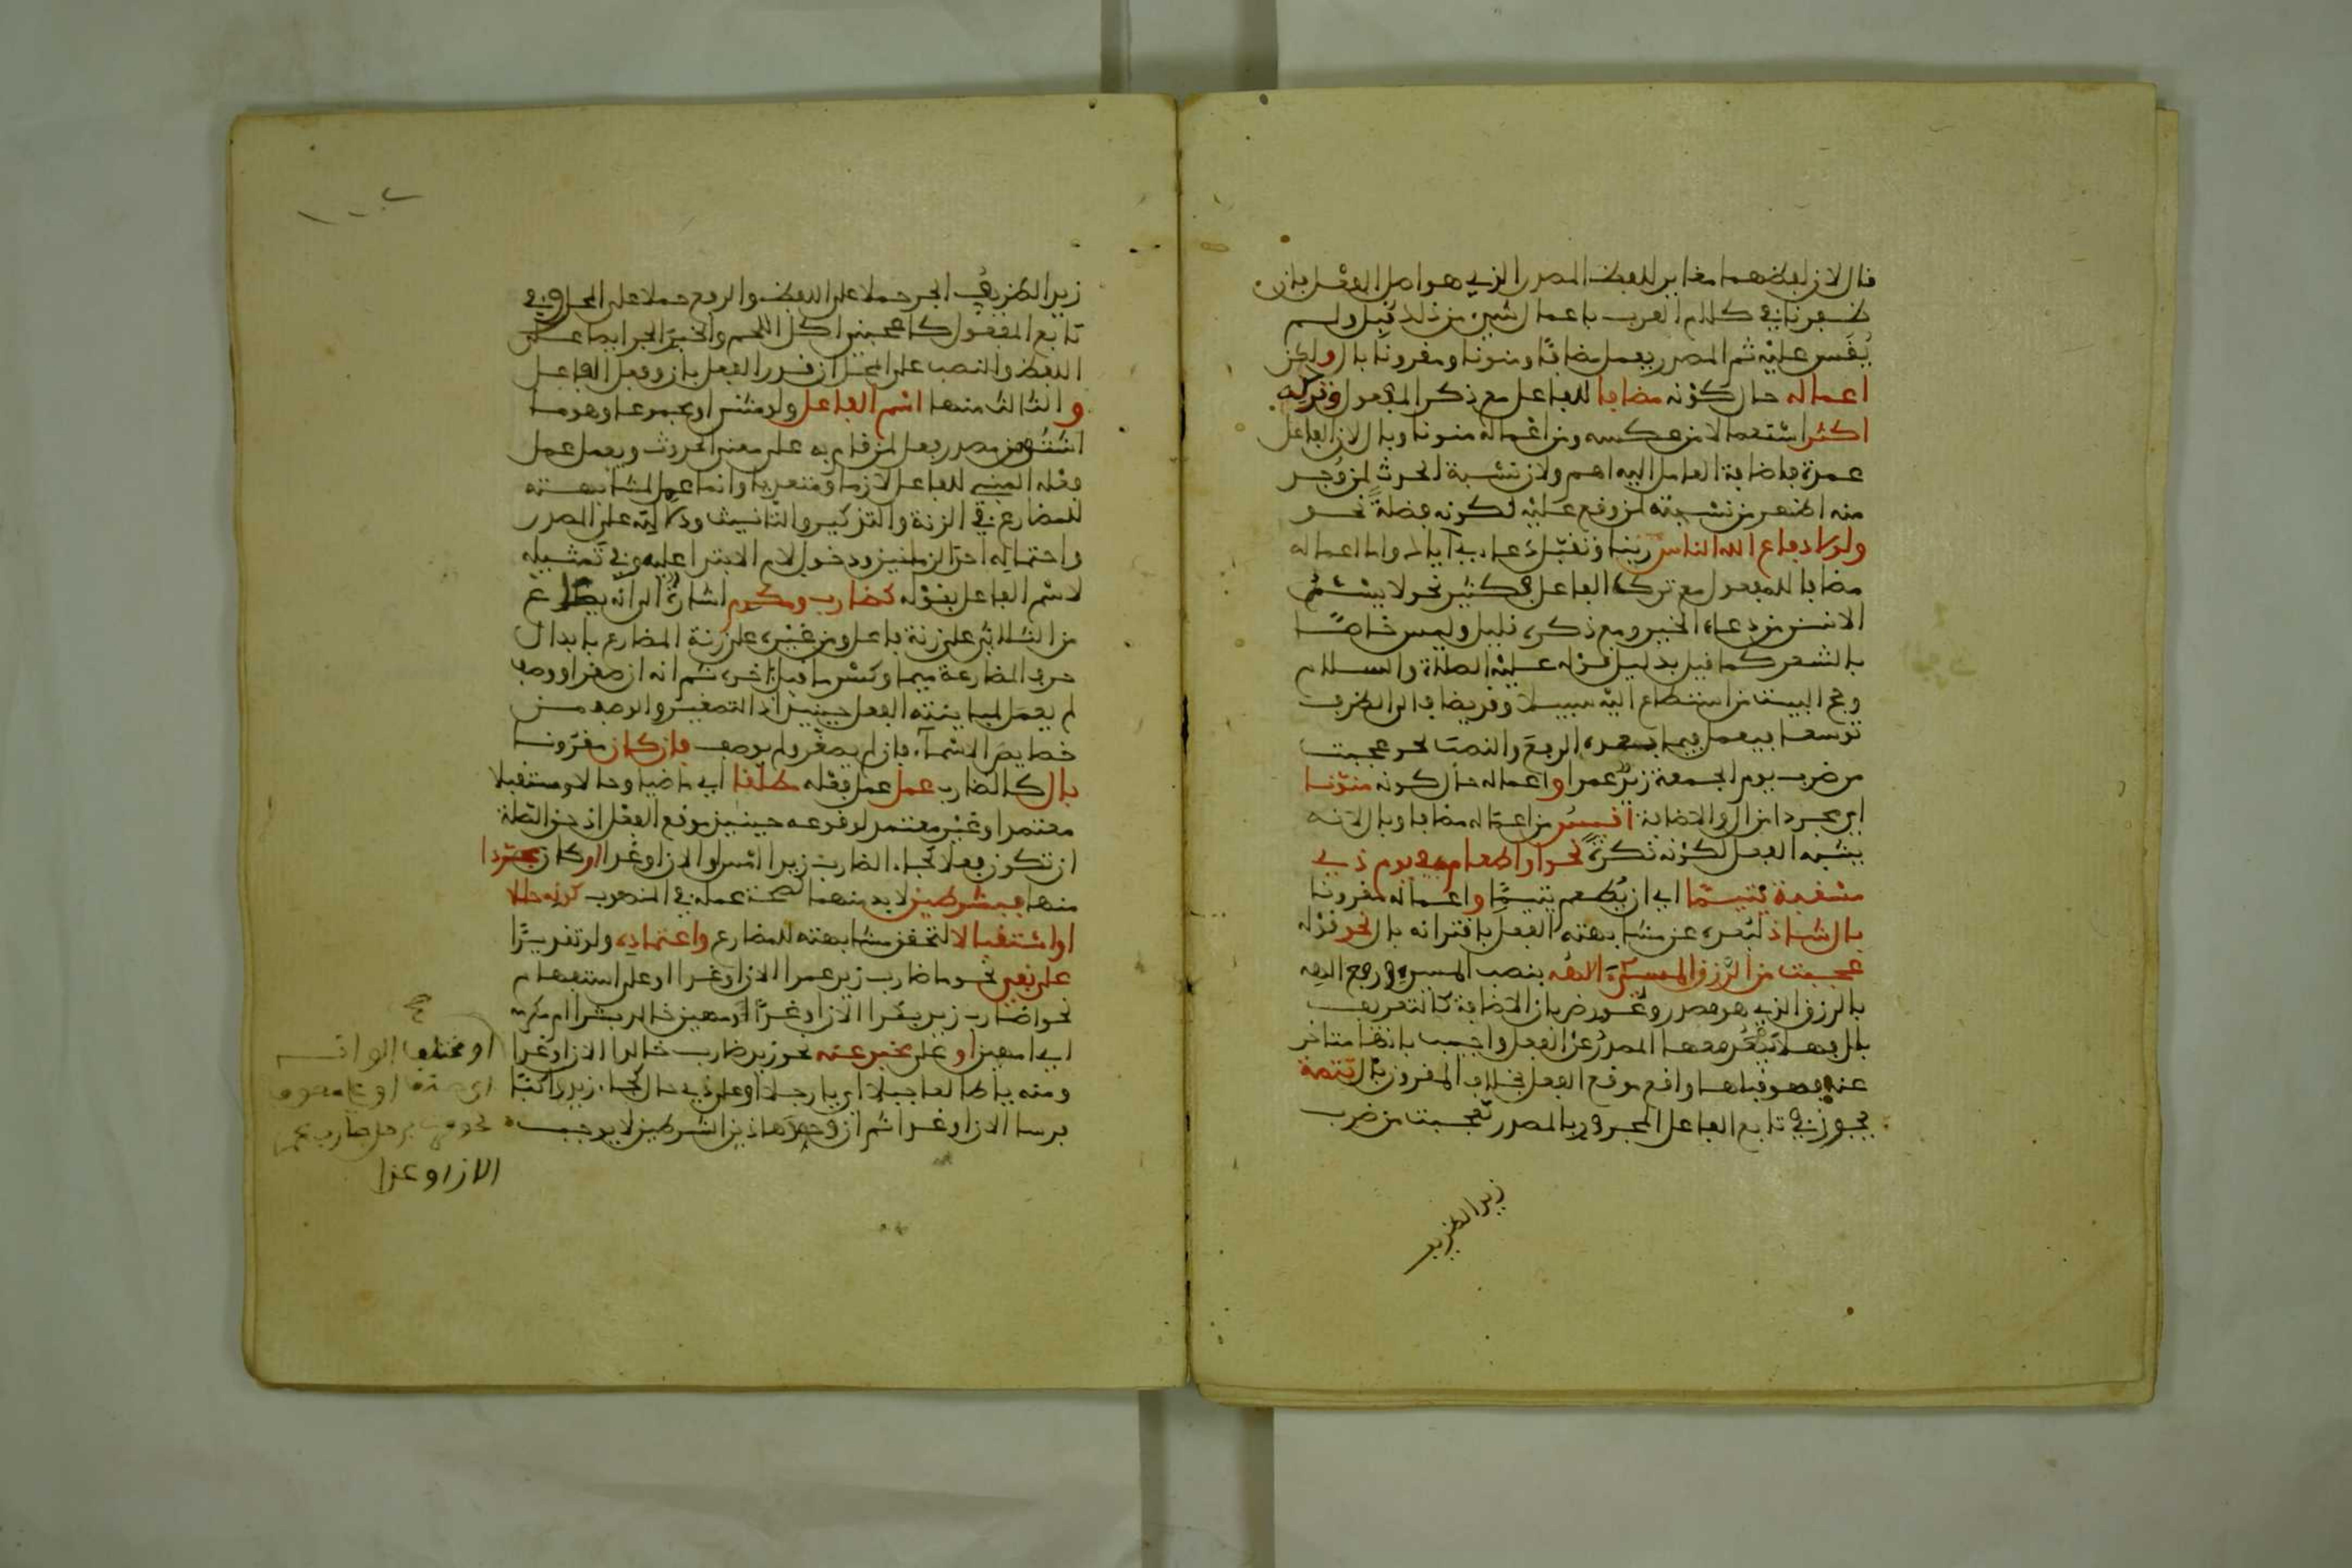 قال لان لفظهما مغاير للفظ المصدر الذي هو اصل الفعل فان
ظفرنا في كلام العرب باعمال شيء من ذلك قبل ولم
يقس عليه ثم المصدر يعمل مضافا ومنونا ومقرونا بال ولكن
اعماله حال كونه مضافا للفاعل مع ذكر المفعول وتركه
اكثر استعمالا من عكسه ومن اعماله منونا وبال لان الفاعل
عمدة فاضافة العامل اليه اهم ولان نسبة الحدث لمن وجد
منه اظهر من نسبته لمن وقع عليه لكونه فضلة نحو
ولولا دفاع الله الناس ربنا وتقبل دعاءي اياك واما اعماله
مضافا للمفعول مع ترك الفاعل فكثير نحو لا يسئم
الانسن من دعاء الخير ومع ذكره قليل وليس خاصا
بالشعر كما قيل بدليل قوله عليه الصلاة والسلام
وحج البيت من استطاع اليه سبيلا وقد يضاف الى الظرف
توسعا فيعمل فيما بعده الرفع والنصب نحو عجبت
من ضرب يوم الجمعة زيد عمرا واعماله حال كونه منونا
اي مجردا من ال والاضافة اقيس من اعماله مضافا وبال لانه
يشبه الفعل لكونه نكرة نحو او اطعام في يوم ذي
مسغبة يتيما اي ان يطعم يتيما واعماله مقرونا
بال شاذ لبعده عن مشابهته الفعل باقترانه بال نحو قوله
عجبت من الرزق المسيء الاهه بنصب المسيء ورفع الاهه
بالرزق الذي هو مصدر وعورض بان الاضافة كالتعريف
بال فهلا يبعد معها المصدر عن الفعل واجيب بانها متاخر
عنه فهو قبلها واقع موقع الفعل بخلاف المقرون بال تتمة
يجوز في تابع الفاعل المجرور بالمصدر كعجبت من ضرب
زيد الظريف
زيد الظريف الجر حملا على اللفظ والرفع حملا على المحل وفي
تابع المفعول كاعجبني اكل اللحم والخبز الجر ايضا على
اللفظ والنصب على المحل ان قدر الفعل بان وفعل الفاعل
والثالث منها اسم الفاعل ولو مثنى او مجموعا وهو ما
اشتق من مصدر فعل لمن قام به على معنى الحدوث ويعمل عمل
فعله المبني للفاعل لازما ومتعديا وانما عمل لمشابهته
للمضارع في الزنة والتذكير والتانيث ودلالته على المصدر
واحتماله احد الزمنين ودخول لام الابتداء عليه وفي تمثيله
لاسم الفاعل بقوله كضارب ومكرم اشارة الى انه يصاغ
من الثلاثي على زنة فاعل ومن غيره على زنة المضارع بابدال
حرف المضارعة ميما وكسر ما قبل اخره ثم انه ان صغر او وصف
لم يعمل لمباينته الفعل حينئذ اذ التصغير والوصف من
خصايص الاسماء فان لم يصغر ولم يوصف فان كان مقرونا
بال كالضارب عمل عمل فعله مطلقا اي ماضيا وحالا ومستقبلا
معتمدا وغير معتمد لوقوعه حينئذ موقع الفعل اذ حق الصلة
ان تكون فعلا كجاء الضارب زيدا امس او الان او غدا او كان مجردا
منها فبشرطين لا بد منهما لصحة عمله في المنصوب كونه حالا
او استقبالا لتحقق مشابهته للمضارع واعتماده ولو تقديرا
على نفي نحو ما ضارب زيد عمرا الان او غدا او على استفهام
نحو اضارب زيد بكرا الان او غدا او مهين خالد بشرا ام مكرمه
اي امهين او على مخبر عنه نحو زيد ضارب خالدا الان او غدا
ومنه يا طالعا جبلا اي يا رجلا او على ذي حال كجاء زيد راكبا
فرسا الان او غدا ثم ان وجود هاذين الشرطين لا يوجب
او مختلف الوانه
اي صنف او على موصوف
نحو مررت برجل ضارب عمرا
الان او غدا